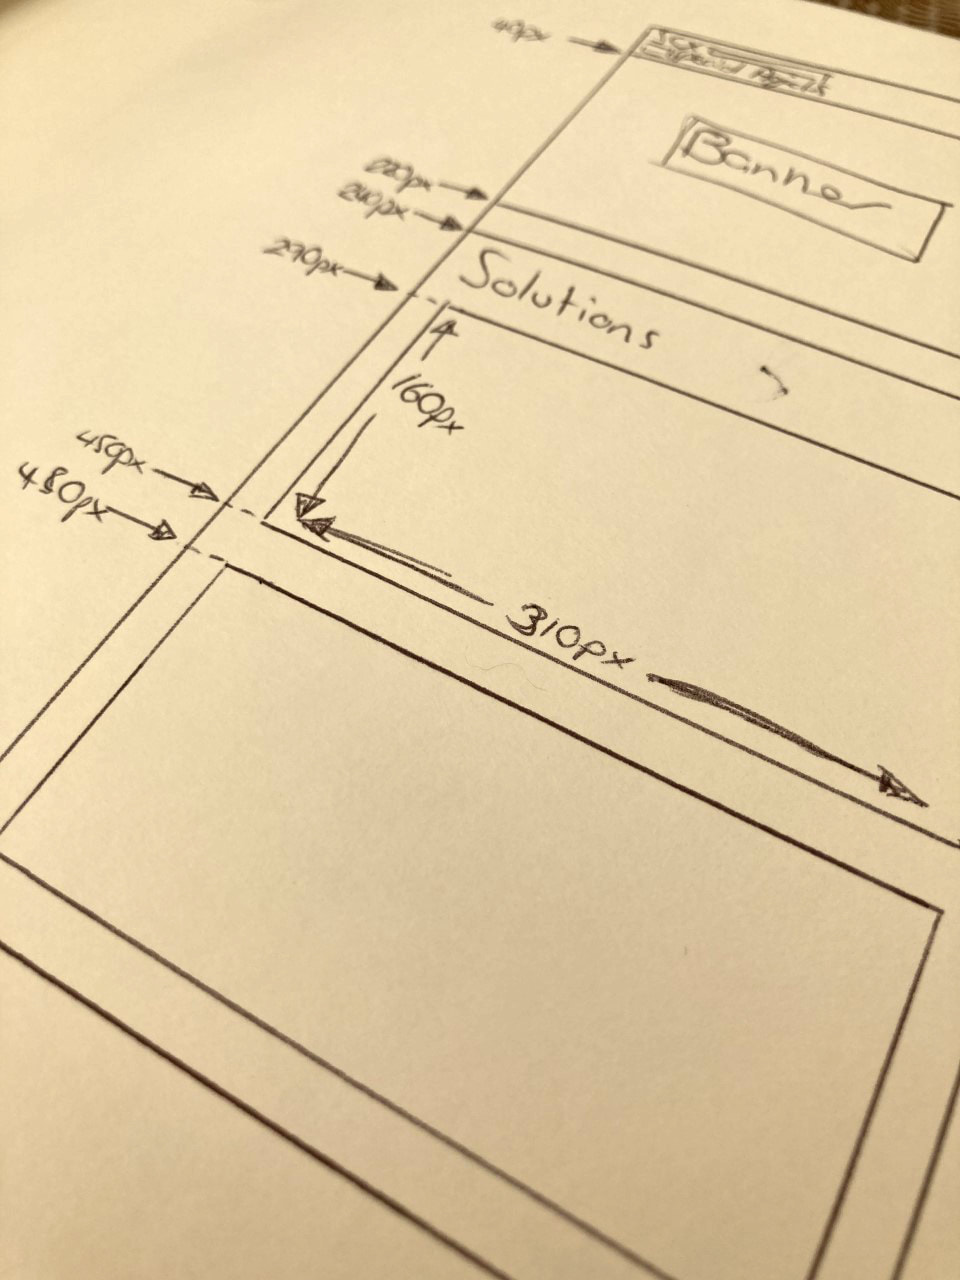 40px
Banner
220px
240px
270px
Solutions
160px
450px
480px
310px